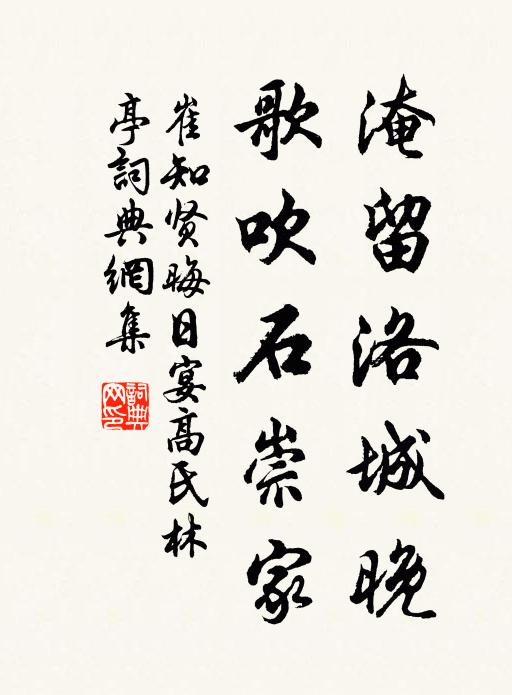 淹留洛城晚
歌吹石崇家
崔知贤晦日宴高氏林
亭詞典網集
詞典
网印